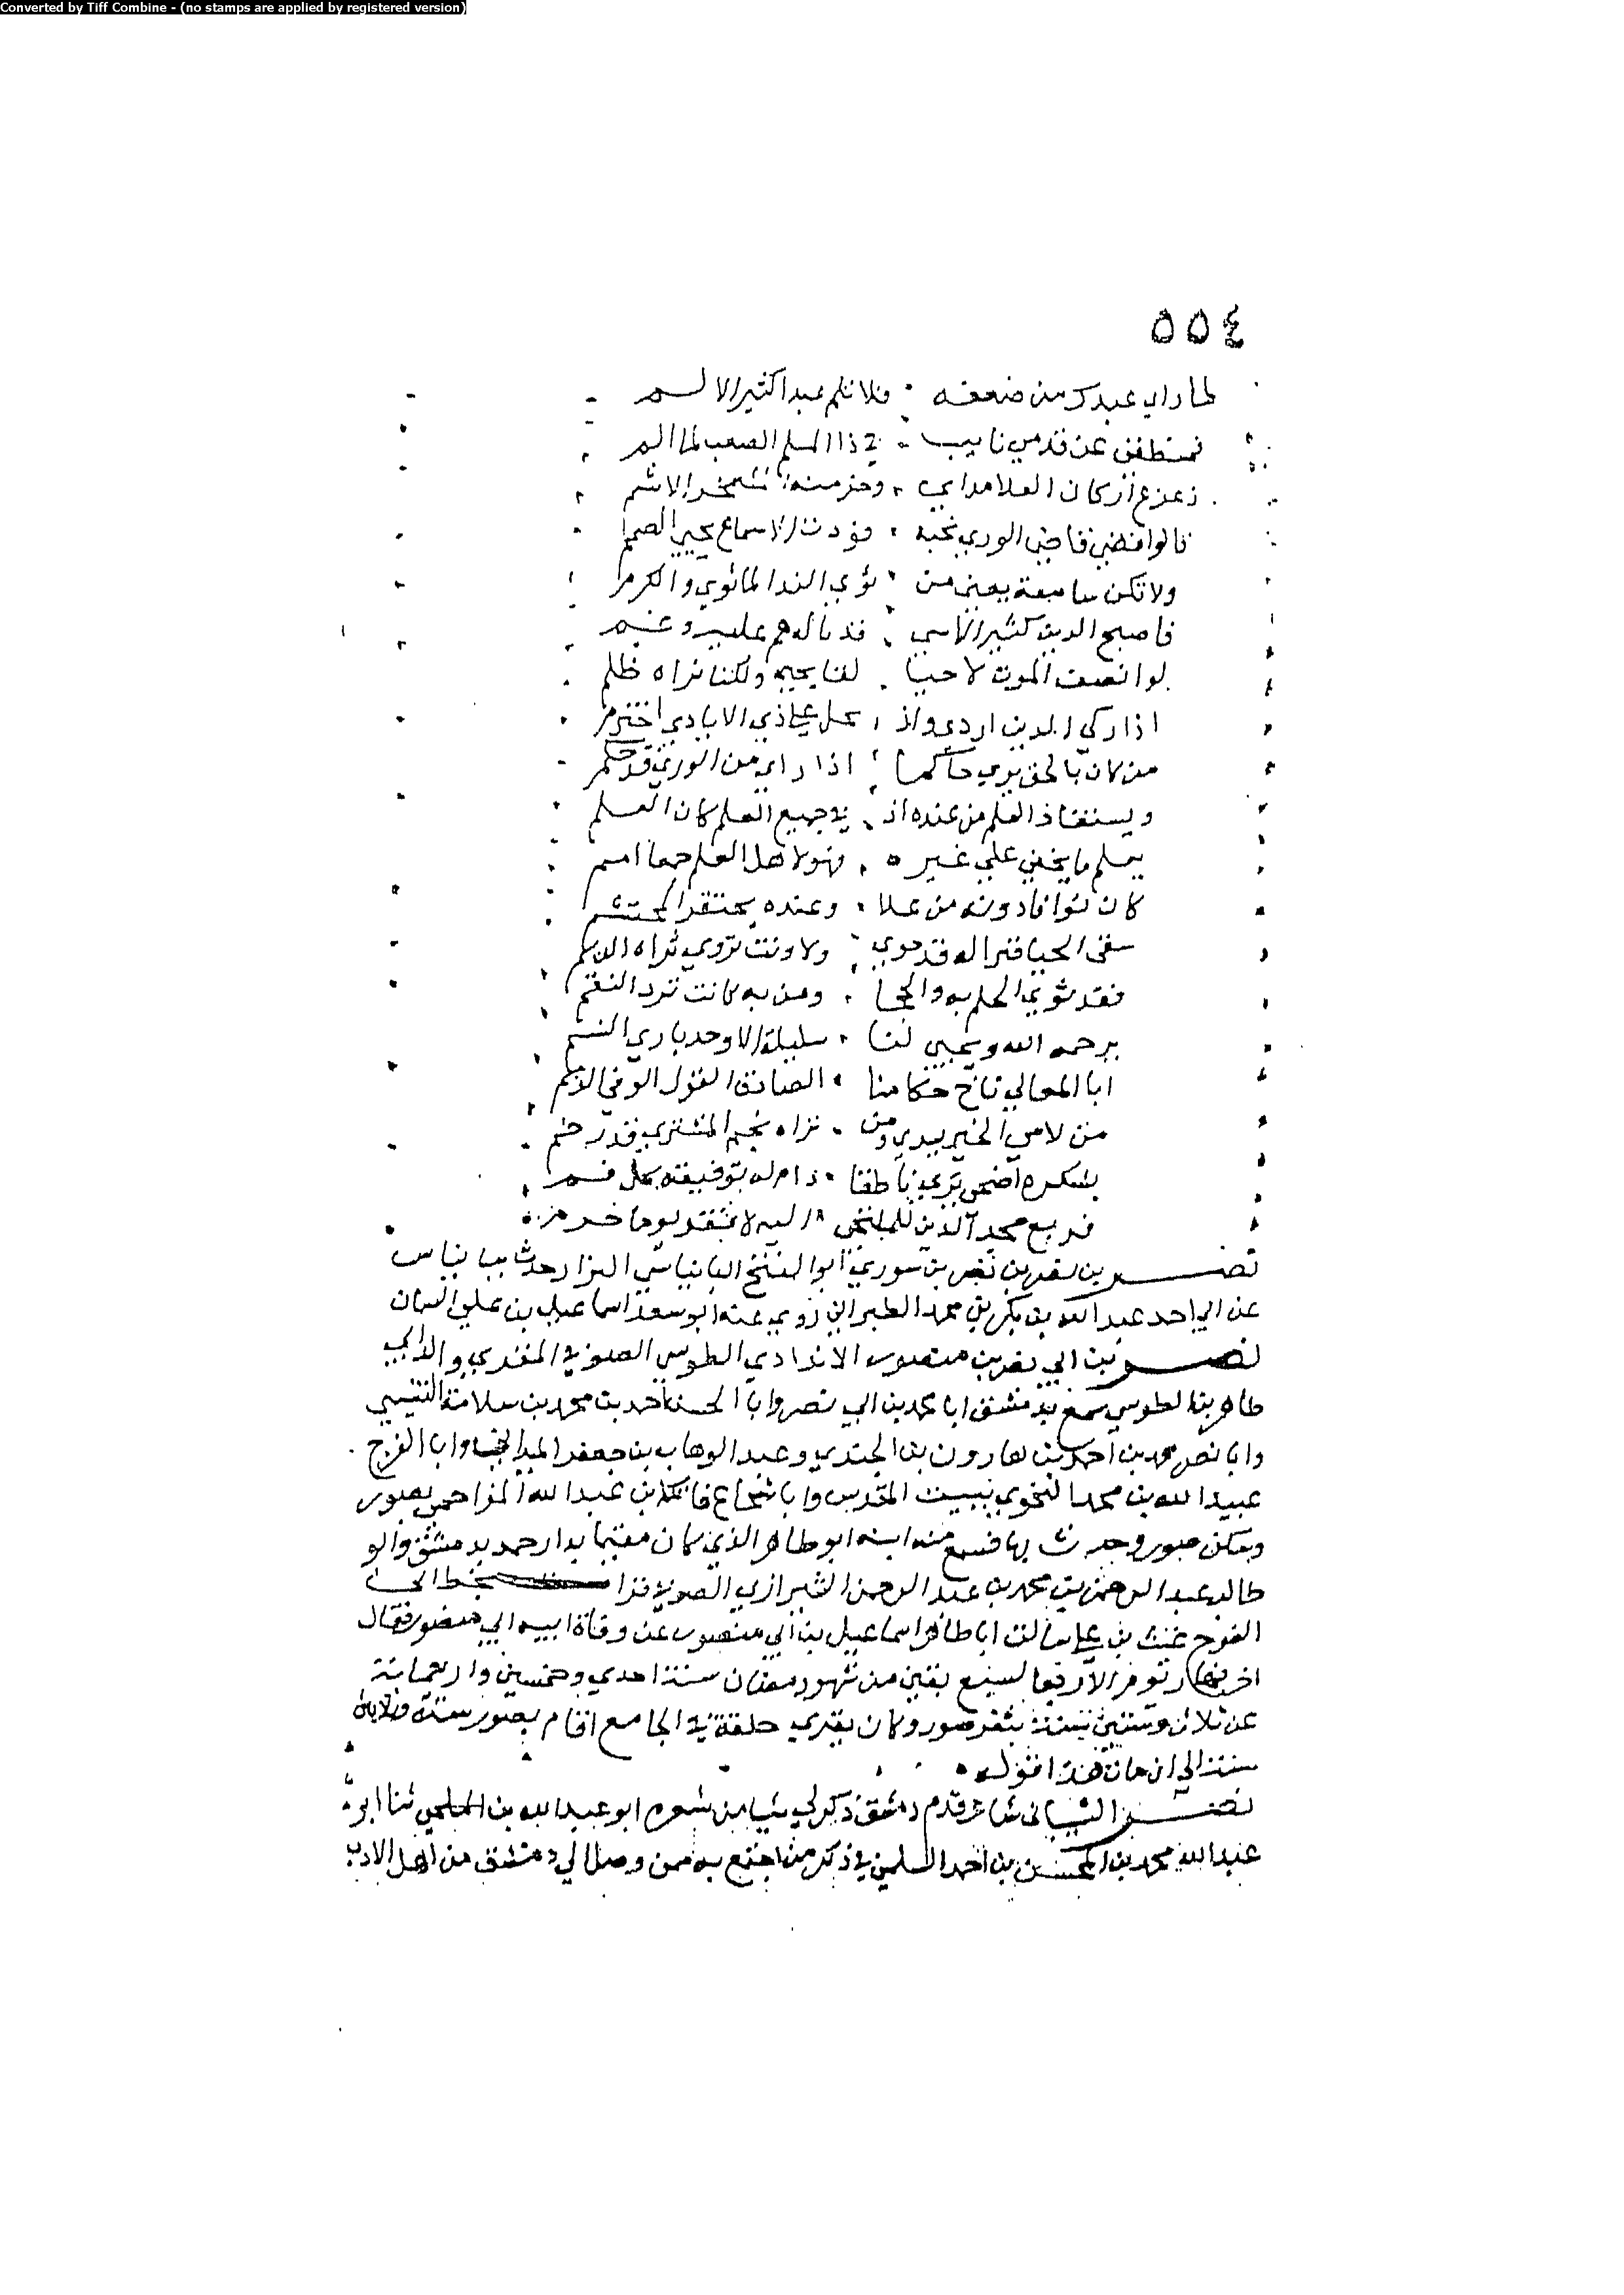 Converted by Tiff Combine - (no stamps are applied by registered version)
٥٥٤
لما راي عبدك من ضعفه فلا تلم عبدا كثير الالم
عن قدمي نايب في ذا المسلم الصعب لما الم
زعزع اركان العلا مذ ابي وخر منه الاشم
قالوا قضي قاضي الوري نحبه فؤدت الاسماع يحيي الصمم
ولا تكن سامعة بعين من يؤي الندا الماثوي والكرم
فاصبح الدين كثير الاسي قد ناله هم عليه وغم
لو انصف الموت لاحيا لنا يحيي ولكنا نراه ظلم
اذا ركي الدين اردي واذ حل علي ذي الايادي اخترم
من كان بالحق يري حاكما اذا راي من الوري قد حكم
ويستفاد العلم من عنده اذ في جميع العلم كان العلم
يعلم ما يخفي علي غيره فهو لاهل العلم جمعا امم
كان لنوا فادونه من علا وعنده يحتقر المحتشم
سقي الحيا قبرا له قد حوي ولا ونت تروي ثراه الديم
فقد ثوي الحلم به والحجا ومن به كانت ترد النقم
يرحمه الله ويحيي لنا سليله الاوحد باري النسم
ابا المعالي تاج حكامنا الصادق القول الوفي الذمم
من لامي الخير يبدي ومن نراه نجم المشتري قد رخم
بشكره اضحي ناطقا دام له توفيقه بحل قسم
فربع مجد الدين للملتجي اليه لا تفقد يوما حرم
نصر بن نصر بن نصر بن سوري ابو الفتح البانياسي البزار حدث ببانياس
عن ابي احمد عبد الله بن بكر بن محمد الطبراني روي عنه ابو سعد اسماعيل بن علي السمان
نصر بن ابي نصر بن منصور الطوسي الصوفي المقري والد ابي
طاهر بن الطوسي سمع بدمشق ابا محمد بن ابي نصر وابا الحسن احمد بن محمد بن سلامة
وابا نصر محمد بن احمد بن هارون بن الجندي وعبد الوهاب بن جعفر الميداني وابا الفرج
عبيد الله بن محمد النحوي ببيت المقدس وابا شجاع فاتك بن عبد الله المزاحمي بصور
وسكن صور وحدث بها فسمع منه ابنه ابو طاهر الذي كان مقيما بدار حمد بدمشق وابو
طالب عبد الرحمن بن محمد بن عبد الرحمن الشيرازي الصوفي بخط ابي
الفرج غيث بن علي سالت ابا طاهر اسماعيل بن ابي منصور عن وفاة ابيه ابي منصور فقال
اخر نهار يوم الاربعا لسبع بقين من شهور رمضان سنة احدي وخمسين واربعماية
عن ثلاث وستين سنة بثغر صور وكان يقري حلقة في الجامع اقام بصور ستة وثلاثين
سنة الي ان مات هذا قوله
نصر الشيباني شاعر قدم دمشق ذكر لي شيا من شعره ابو عبد الله بن الملحي ثنا ابو
عبد الله محمد بن المحسن بن احمد السلمي في ذكر من اجتمع به ممن وصل الي دمشق من اهل الادب